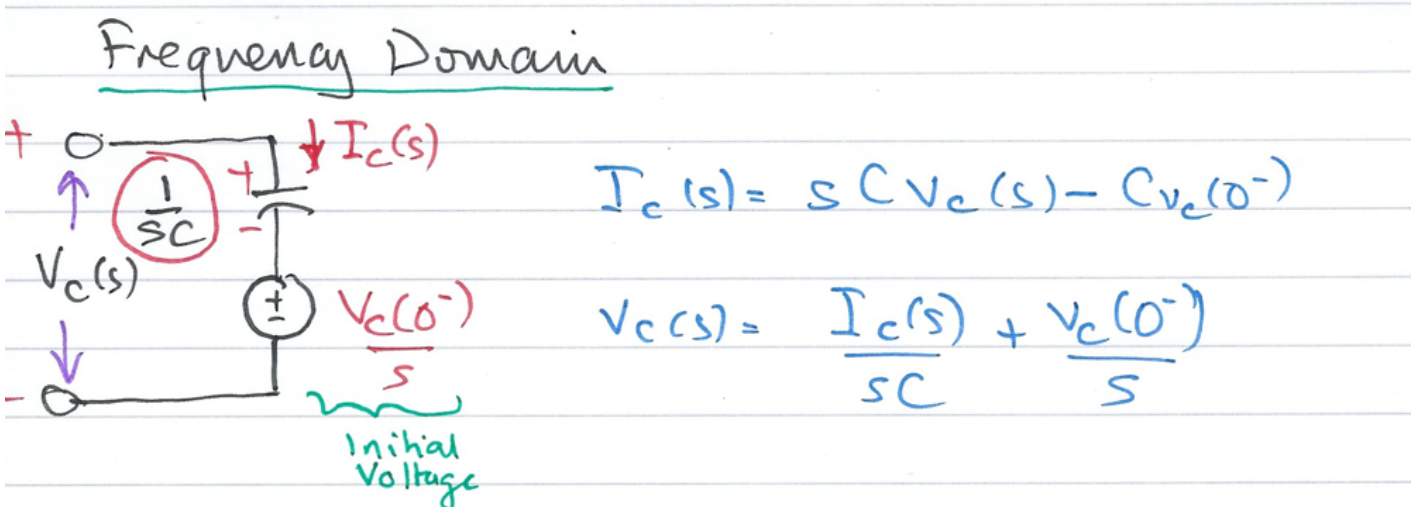 Frequency Domain
+
I_c(s)
1/sC
+
-
V_c(s)
+
-
V_c(0⁻)/s
-
Initial
Voltage
I_c(s) = s C V_c(s) - C v_c(0⁻)
V_c(s) = I_c(s)/sC + v_c(0⁻)/s